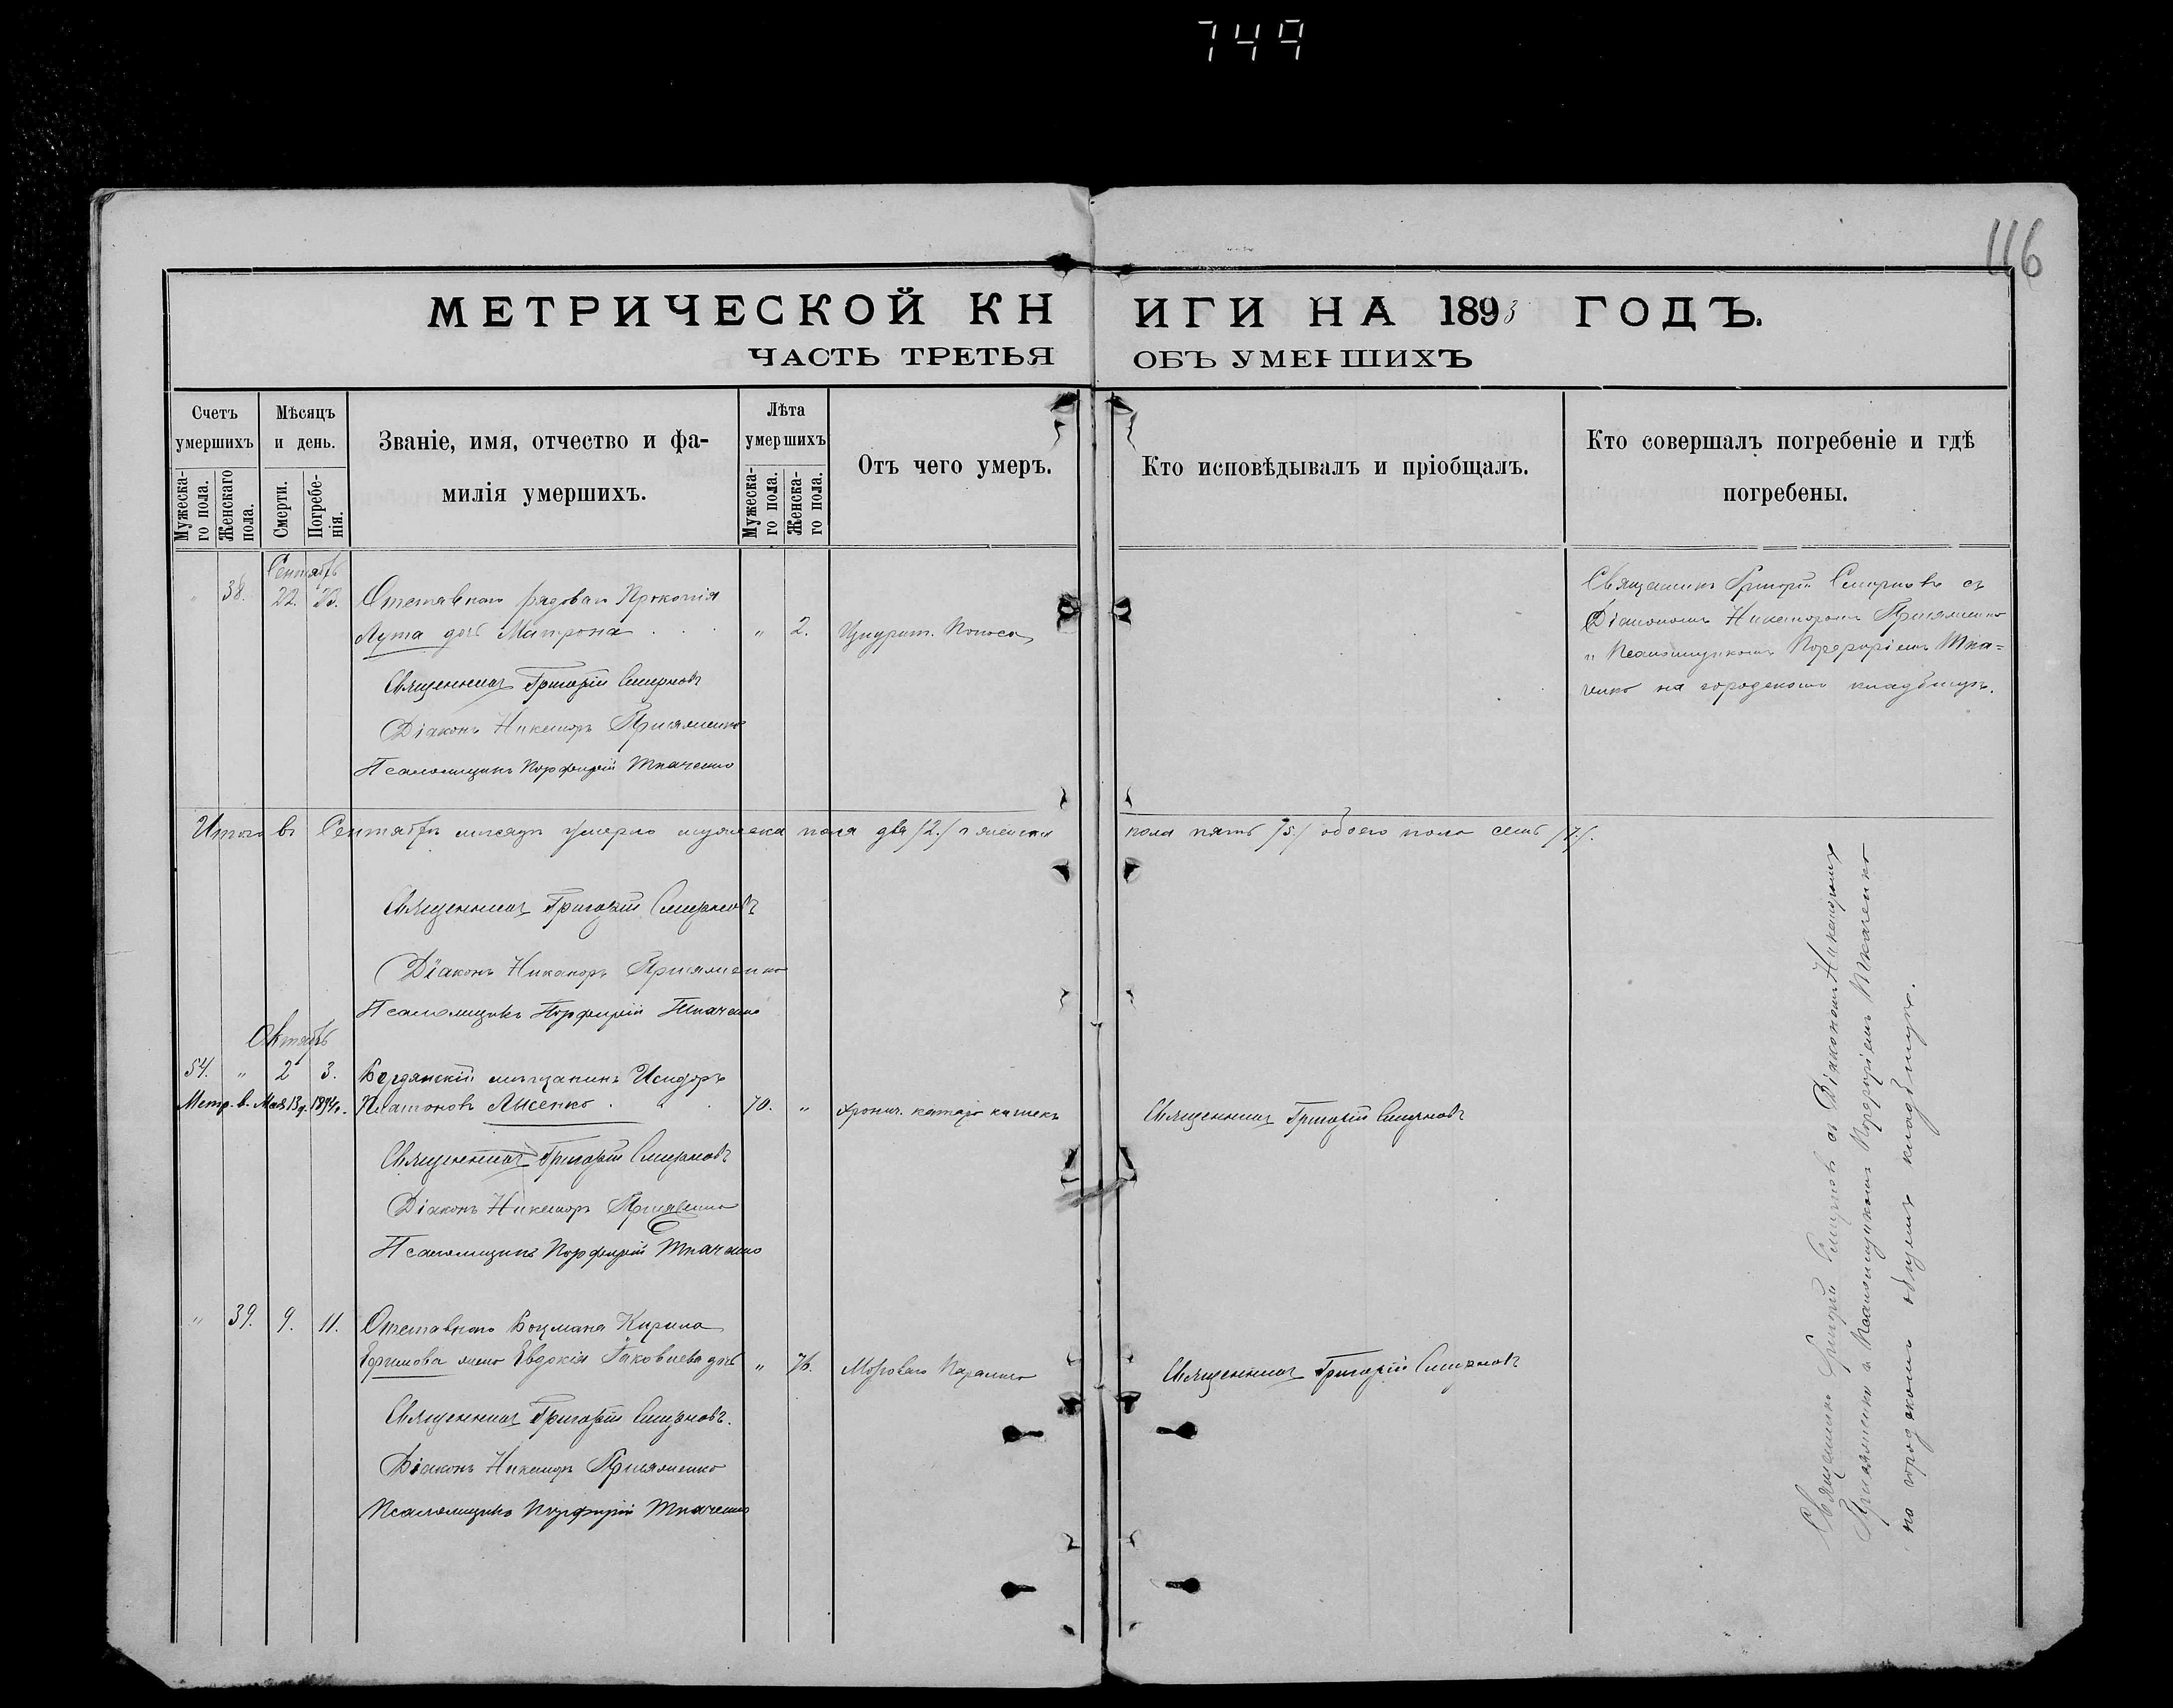 749
116
МЕТРИЧЕСКОЙ КНИГИ НА 1893 ГОДЪ.
ЧАСТЬ ТРЕТЬЯ ОБЪ УМЕРШИХЪ
Счетъ умершихъ
Мужеска-го пола.
Женскаго пола.
Мѣсяцъ и день.
Смерти.
Погребе-нія.
Званіе, имя, отчество и фа-
милія умершихъ.
Лѣта умершихъ
Мужеска-го пола.
Женска-го пола.
Отъ чего умеръ.
Кто исповѣдывалъ и пріобщалъ.
Кто совершалъ погребеніе и гдѣ
погребены.
Сентябрь
" 38. 22. 23. Отставного рядового Прокопія
Лута дочь Матрона . . . " 2. поноса
Священникъ Григорій Смирновъ
Діаконъ Никаноръ Присяженко
Псаломщикъ Порфирій Ткаченко
Священникъ Григорій Смирновъ съ
Діакономъ Никаноромъ Присяженко
и Псаломщикомъ Порфиріемъ Тка=
ченко на городскомъ кладбищѣ.
Итого въ Сентябрѣ мѣсяцѣ умерло мужеска пола два /2./ и женска пола пять /5./ обоего пола семь /7./.
Священникъ Григорій Смирновъ
Діаконъ Никаноръ Присяженко
Псаломщикъ Порфирій Ткаченко
Октябрь
54. " 2 3. Бердянскій мѣщанинъ Исидоръ
Метр. в. Мая 13 д. 1894 г. Платоновъ Лысенко . . . 70. " Хронич. катарр. кишекъ Священникъ Григорій Смирновъ
Священникъ Григорій Смирновъ
Діаконъ Никаноръ Присяженко
Псаломщикъ Порфирій Ткаченко
" 39. 9. 11. Отставного Боцмана Кирила
Ефимова жена Евдокія Яковлева дочь " 76. Мозгового Паралича Священникъ Григорій Смирновъ
Священникъ Григорій Смирновъ.
Діаконъ Никаноръ Присяженко
Псаломщикъ Порфирій Ткаченко
Священникъ Григорій Смирновъ съ Діакономъ Никаноромъ
Присяженко и Псаломщикомъ Порфиріемъ Ткаченко
на городскомъ общемъ кладбищѣ.